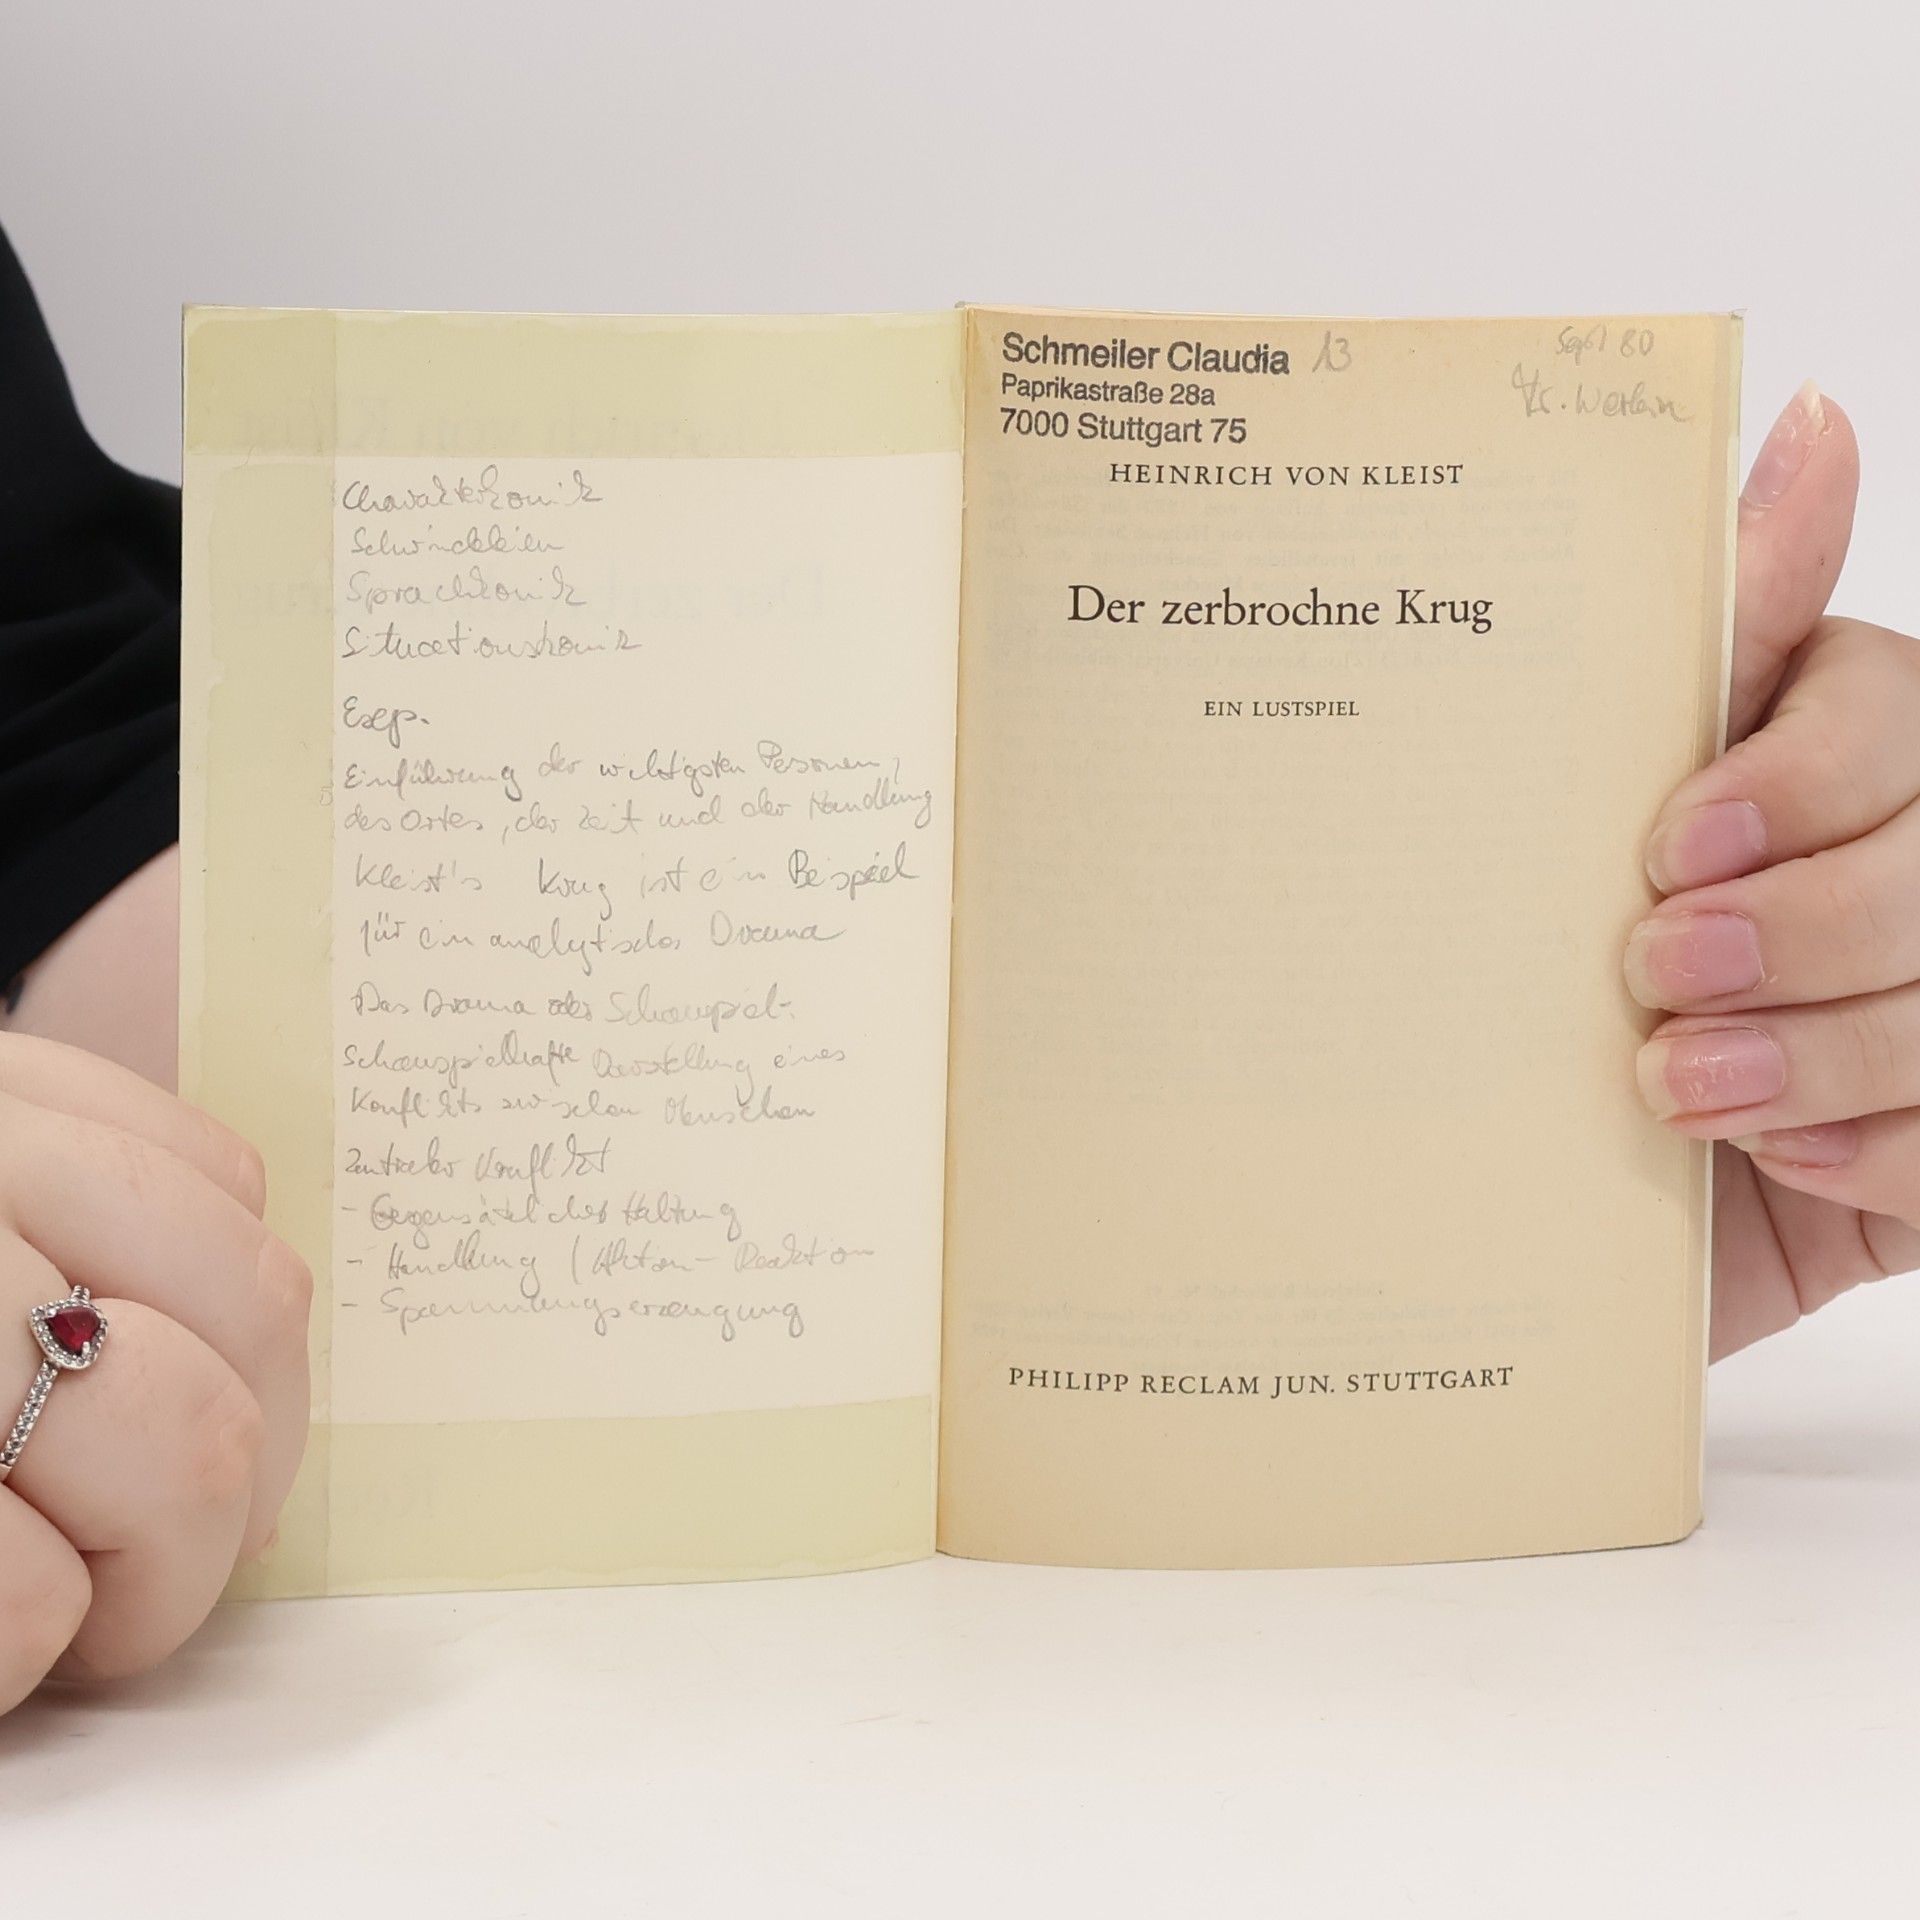 Charakterkomik
Sprachkomik
Situationskomik
Exp.
Einführung der wichtigsten Personen,
des Ortes, der Zeit und der Handlung
Kleist's Krug ist ein Beispiel
für ein analytisches Drama
Das Drama oder Schauspiel:
Schauspielhafte Darstellung eines
Konflikts zwischen Menschen
Zentraler Konflikt
- Gegensätzliche Haltung
- Handlung / Aktion - Reaktion
- Spannungserzeugung
Schmeiler Claudia 13
Paprikastraße 28a
7000 Stuttgart 75
Sept 80
HEINRICH VON KLEIST
Der zerbrochne Krug
EIN LUSTSPIEL
PHILIPP RECLAM JUN. STUTTGART